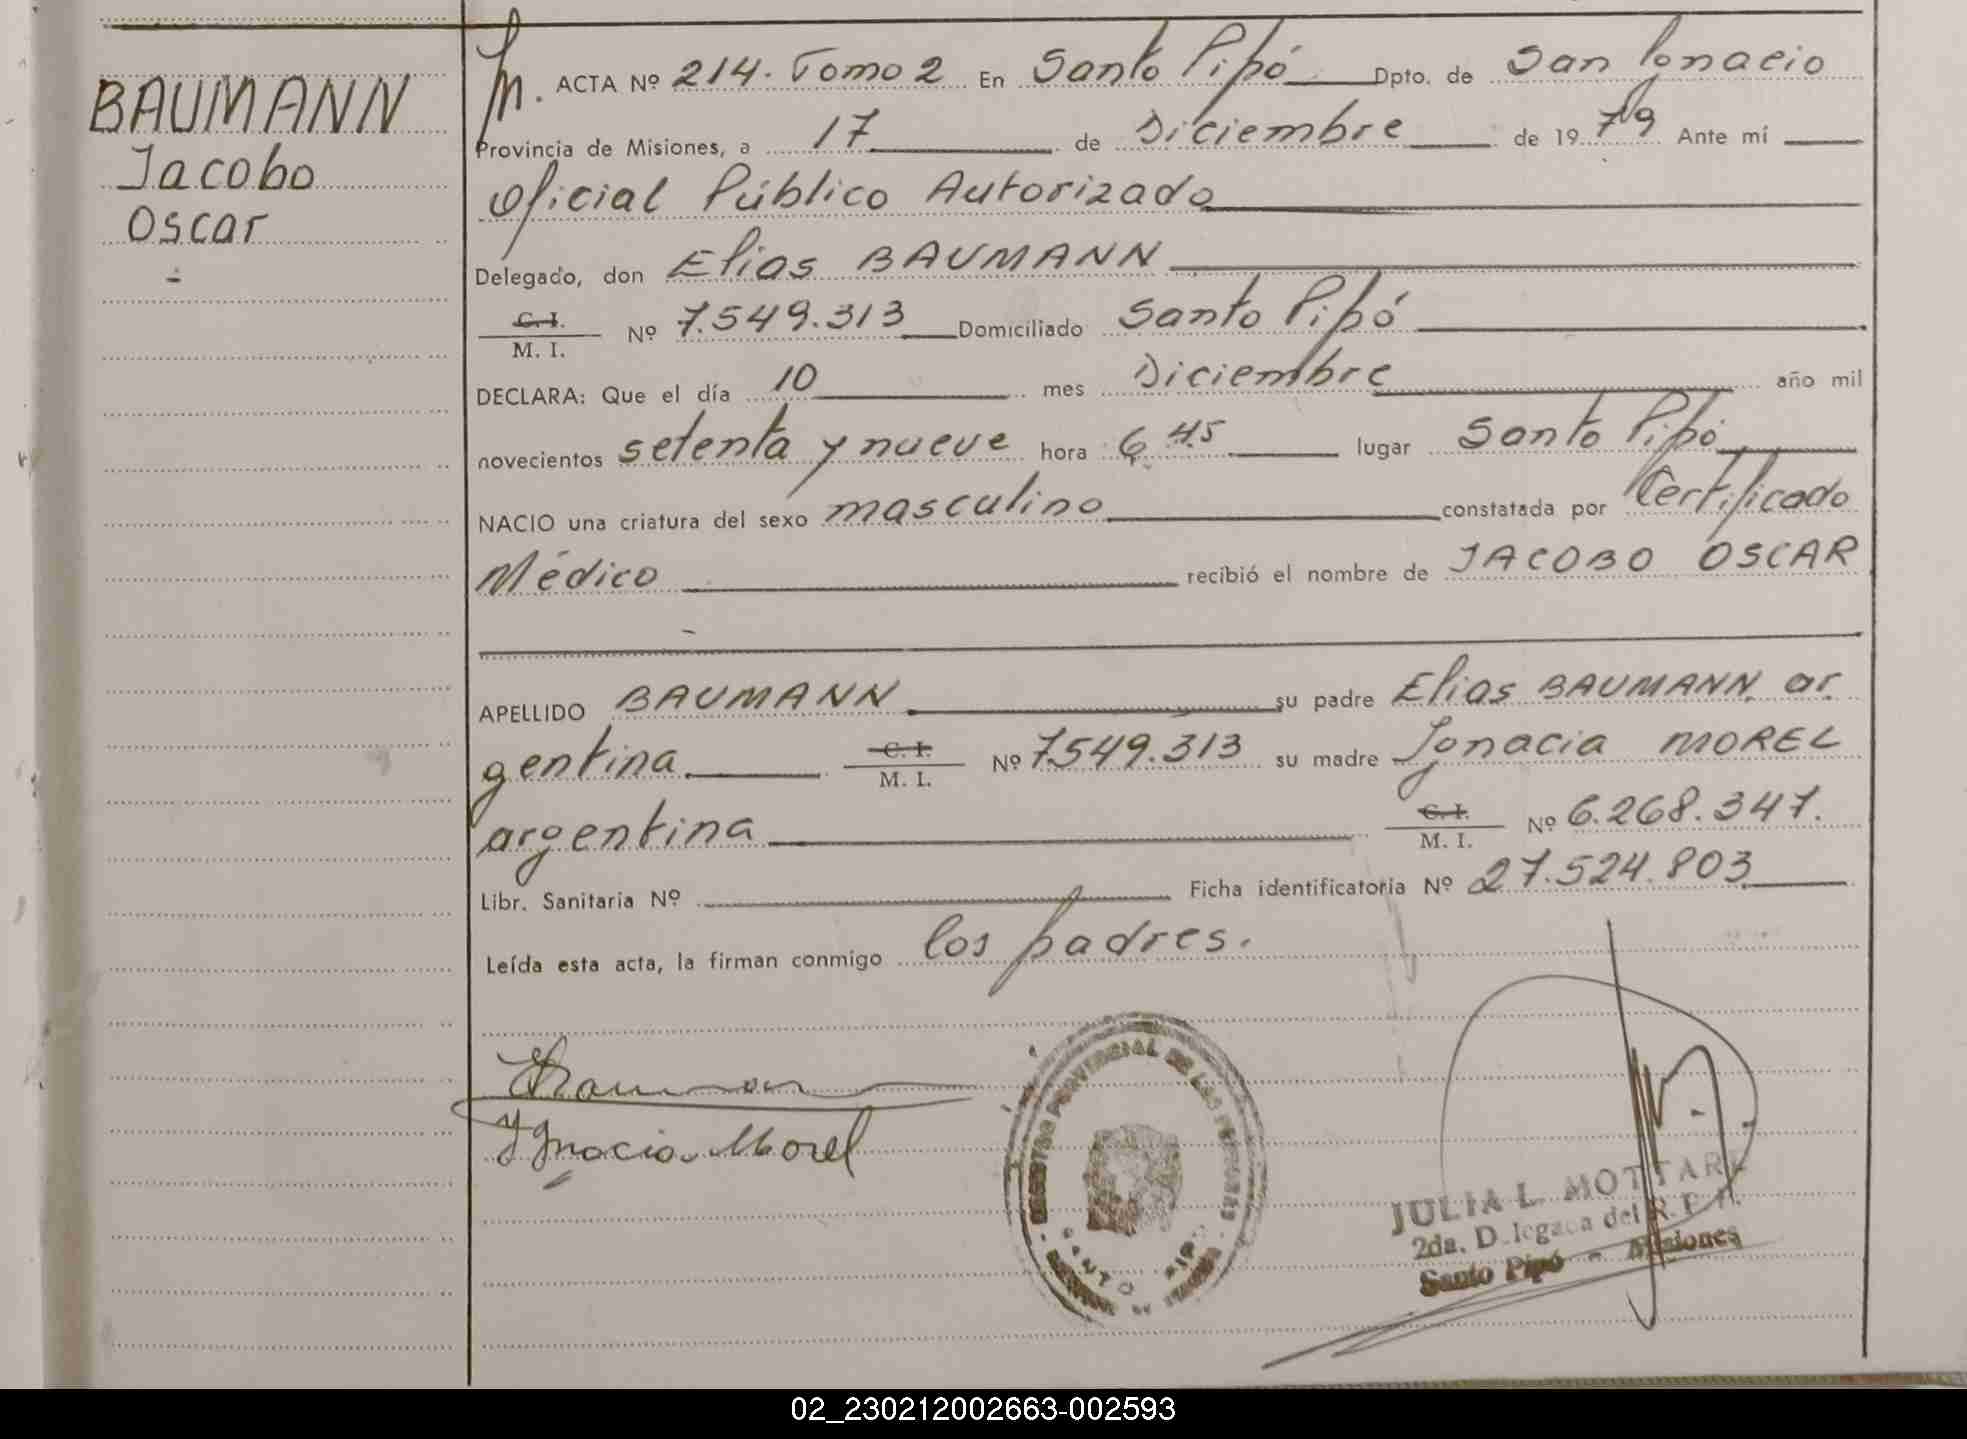 BAUMANN
Jacobo
Oscar
-
M. ACTA Nº 214. Tomo 2 En Santo Pipó Dpto. de San Ignacio
Provincia de Misiones, a 17 de Diciembre de 1979 Ante mí
Oficial Público Autorizado
Delegado, don Elias BAUMANN
C. I.
M. I. Nº 7.549.313 Domiciliado Santo Pipó
DECLARA: Que el día 10 mes Diciembre año mil
novecientos setenta y nueve hora 6,45 lugar Santo Pipó
NACIO una criatura del sexo masculino constatada por Certificado
Médico recibió el nombre de JACOBO OSCAR
APELLIDO BAUMANN su padre Elias BAUMANN, ar
gentina C. I.
M. I. Nº 7.549.313 su madre Ignacia MOREL
argentina C. I.
M. I. Nº 6.268.347.
Libr. Sanitaria Nº Ficha identificatoria Nº 27.524.803
Leída esta acta, la firman conmigo los padres.
Ygnacia Morel
REGISTRO PROVINCIAL DE LAS PERSONAS
SANTO PIPÓ
JULIA L. MOTTARE
2da. Delegada del R. P. P.
Santo Pipó - Misiones
02_230212002663-002593